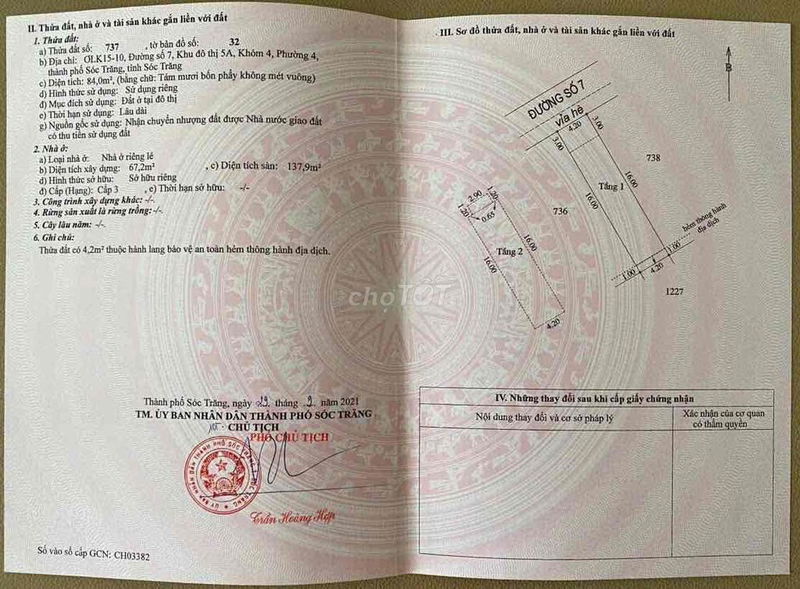 II. Thửa đất, nhà ở và tài sản khác gắn liền với đất
1. Thửa đất:
a) Thửa đất số: 737, tờ bản đồ số: 32
b) Địa chỉ: OLK15-10, Đường số 7, Khu đô thị 5A, Khóm 4, Phường 4,
thành phố Sóc Trăng, tỉnh Sóc Trăng
c) Diện tích: 84,0m², (bằng chữ: Tám mươi bốn phẩy không mét vuông)
d) Hình thức sử dụng: Sử dụng riêng
đ) Mục đích sử dụng: Đất ở tại đô thị
e) Thời hạn sử dụng: Lâu dài
g) Nguồn gốc sử dụng: Nhận chuyển nhượng đất được Nhà nước giao đất
có thu tiền sử dụng đất
2. Nhà ở:
a) Loại nhà ở: Nhà ở riêng lẻ
b) Diện tích xây dựng: 67,2m², c) Diện tích sàn: 137,9m²
d) Hình thức sở hữu: Sở hữu riêng
đ) Cấp (Hạng): Cấp 3, e) Thời hạn sở hữu: -/-
3. Công trình xây dựng khác: -/-
4. Rừng sản xuất là rừng trồng: -/-
5. Cây lâu năm: -/-
6. Ghi chú:
Thửa đất có 4,2m² thuộc hành lang bảo vệ an toàn hẻm thông hành địa dịch.
Thành phố Sóc Trăng, ngày tháng năm 2021
TM. ỦY BAN NHÂN DÂN THÀNH PHỐ SÓC TRĂNG
CHỦ TỊCH
PHÓ CHỦ TỊCH
Trần Hoàng Hợp
Số vào sổ cấp GCN: CH03382
chợTỐT
III. Sơ đồ thửa đất, nhà ở và tài sản khác gắn liền với đất
B
ĐƯỜNG SỐ 7
vỉa hè
4.20
3.00
3.00
738
Tầng 1
16.00
16.00
736
2.90
1.20
1.20
0.65
Tầng 2
16.00
16.00
4.20
hẻm thông hành
địa dịch
1.00
1.00
4.20
1227
IV. Những thay đổi sau khi cấp giấy chứng nhận
Nội dung thay đổi và cơ sở pháp lý
Xác nhận của cơ quan
có thẩm quyền